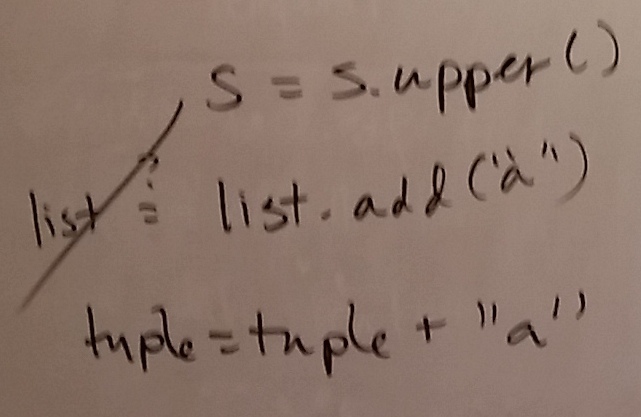 s = s.upper()
list = list.add("a")
tuple = tuple + "a"